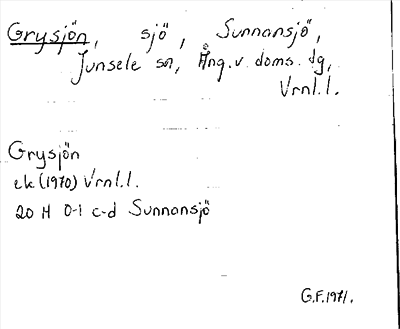 Grysjön, sjö, Sunnansjö,
Junsele sn, Ång.v. doms. dg,
Vrnl.l.
Grysjön
ek (1970) Vrnl.l.
20 H 0-1 c-d Sunnansjö
G.F. 1971.